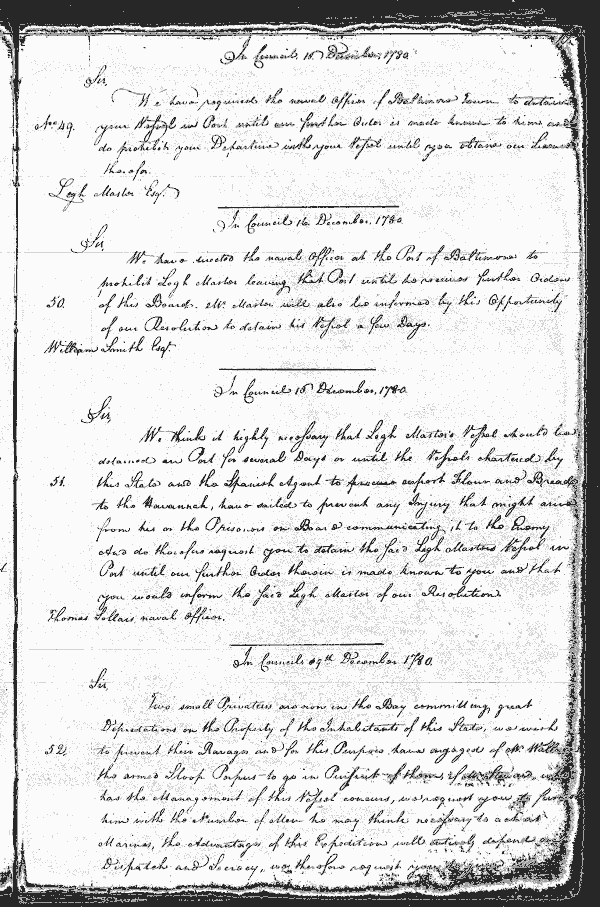 In Council 16 December 1780
Sir,
We have required the naval Officer of Baltimore Town to detain
No. 49. your Vessel in Port until our further Order is made known to him and
do prohibit your Departure with your Vessel until you obtain our Licence
therefor.
Legh Master Esqr.
In Council 16 December 1780
Sir,
We have directed the naval Officer at the Port of Baltimore to
prohibit Legh Master leaving that Port until he receives further Orders
50. of this Board. Mr. Master will also be informed by this Opportunity
of our Resolution to detain his Vessel a few Days.
William Smith Esqr.
In Council 16 December 1780
Sir,
We think it highly necessary that Legh Master's Vessel should be
detained in Port for several Days or until the Vessels chartered by
51. this State and the Spanish Agent to export Flour and Bread
to the Havannah, have sailed to prevent any Injury that might arise
from his or the Prisoners on Board communicating it to the Enemy
And do therefore request you to detain the said Legh Masters Vessel in
Port until our further Order therein is made known to you and that
you would inform the said Legh Master of our Resolution
Thomas Sollars, naval Officer.
In Council 19th December 1780.
Sir,
Two small Privateers are now in the Bay committing great
Depredations on the Property of the Inhabitants of this State, we wish
52. to prevent their Ravages and for this Purpose have engaged of Mr.
the armed Sloop Porpus to go in Pursuit of them,
has the Management of this Vessel concurs, we request you to
him with the Number of Men he may think necessary to act as
Marines, the Advantages of this Expedition will entirely depend on
Dispatch and Secrecy, we therefore request you